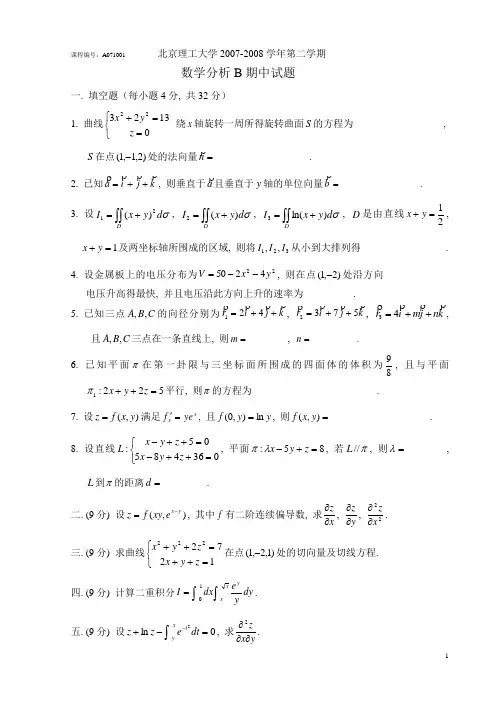 课程编号：A071001 北京理工大学2007-2008学年第二学期
数学分析B期中试题
一. 填空题（每小题4分, 共32分）
1. 曲线 { 3x²+2y²=13, z=0 绕x轴旋转一周所得旋转曲面S的方程为____________________,
S在点(1,-1,2)处的法向量n⃗=____________________.
2. 已知a⃗=i⃗+j⃗+k⃗, 则垂直于a⃗且垂直于y轴的单位向量b⃗=____________________.
3. 设I₁=∬_D (x+y)²dσ, I₂=∬_D (x+y)dσ, I₃=∬_D ln(x+y)dσ, D是由直线x+y=1/2,
x+y=1及两坐标轴所围成的区域, 则将I₁,I₂,I₃从小到大排列得____________________.
4. 设金属板上的电压分布为V=50-2x²-4y², 则在点(1,-2)处沿方向____________________
电压升高得最快, 并且电压沿此方向上升的速率为____________.
5. 已知三点A,B,C的向径分别为r⃗₁=2i⃗+4j⃗+k⃗, r⃗₂=3i⃗+7j⃗+5k⃗, r⃗₃=4i⃗+mj⃗+nk⃗,
且A,B,C三点在一条直线上, 则m=_________, n=__________.
6. 已知平面π在第一卦限与三坐标面所围成的四面体的体积为9/8, 且与平面
π₁:2x+y+2z=5平行, 则π的方程为____________________.
7. 设z=f(x,y)满足f′ₓ=yeˣ, 且f(0,y)=y ln y, 则f(x,y)=____________________.
8. 设直线L: { x-y+z+5=0, 5x-8y+4z+36=0, 平面π:λx-5y+z=8, 若L//π, 则λ=_________,
L到π的距离d=__________.
二. (9分) 设z=f(xy,e^{x-y}), 其中f有二阶连续偏导数, 求∂z/∂x, ∂z/∂y, ∂²z/∂x².
三. (9分) 求曲线 { x²+y²+2z²=7, 2x+y+z=1 在点(1,-2,1)处的切向量及切线方程.
四. (9分) 计算二重积分I=∫₀¹dx∫ₓ^{√x} (e^y/y)dy.
五. (9分) 设z+ln z-∫_y^x e^{-t²}dt=0, 求∂²z/∂x∂y.
1